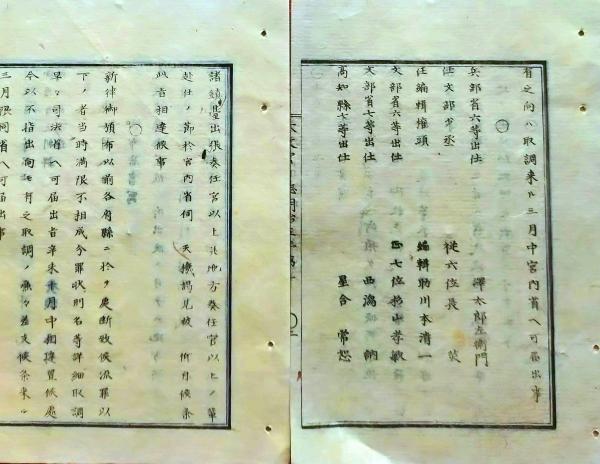 有之向ハ取調来ル三月中宮内省ヘ可届出事
〇
兵部省六等出仕 澤太郎左衛門
任文部少丞 従六位長 炗
任編輯権頭 編輯助川本清一
文部省六等出仕 正七位杉山孝敏
文部省七等出仕 西潟 訥
高知縣七等出仕 星合 常恕
諸鎮臺出張奏任官以上並地方奏任官以上ノ輩
赴任ノ節於宮内省伺 天機謁見被 仰付候条
此旨相達候事
〇
新律御頒布以前各府縣ニ於テ處断致候流罪以
下ノ者当時満限不相成分罪状刑名等詳細取調
早々司法省ヘ可届出旨辛未 月中相達置候處
今以不指出向モ有之取調ノ 差支候条来ル
三月限同省ヘ可届出事